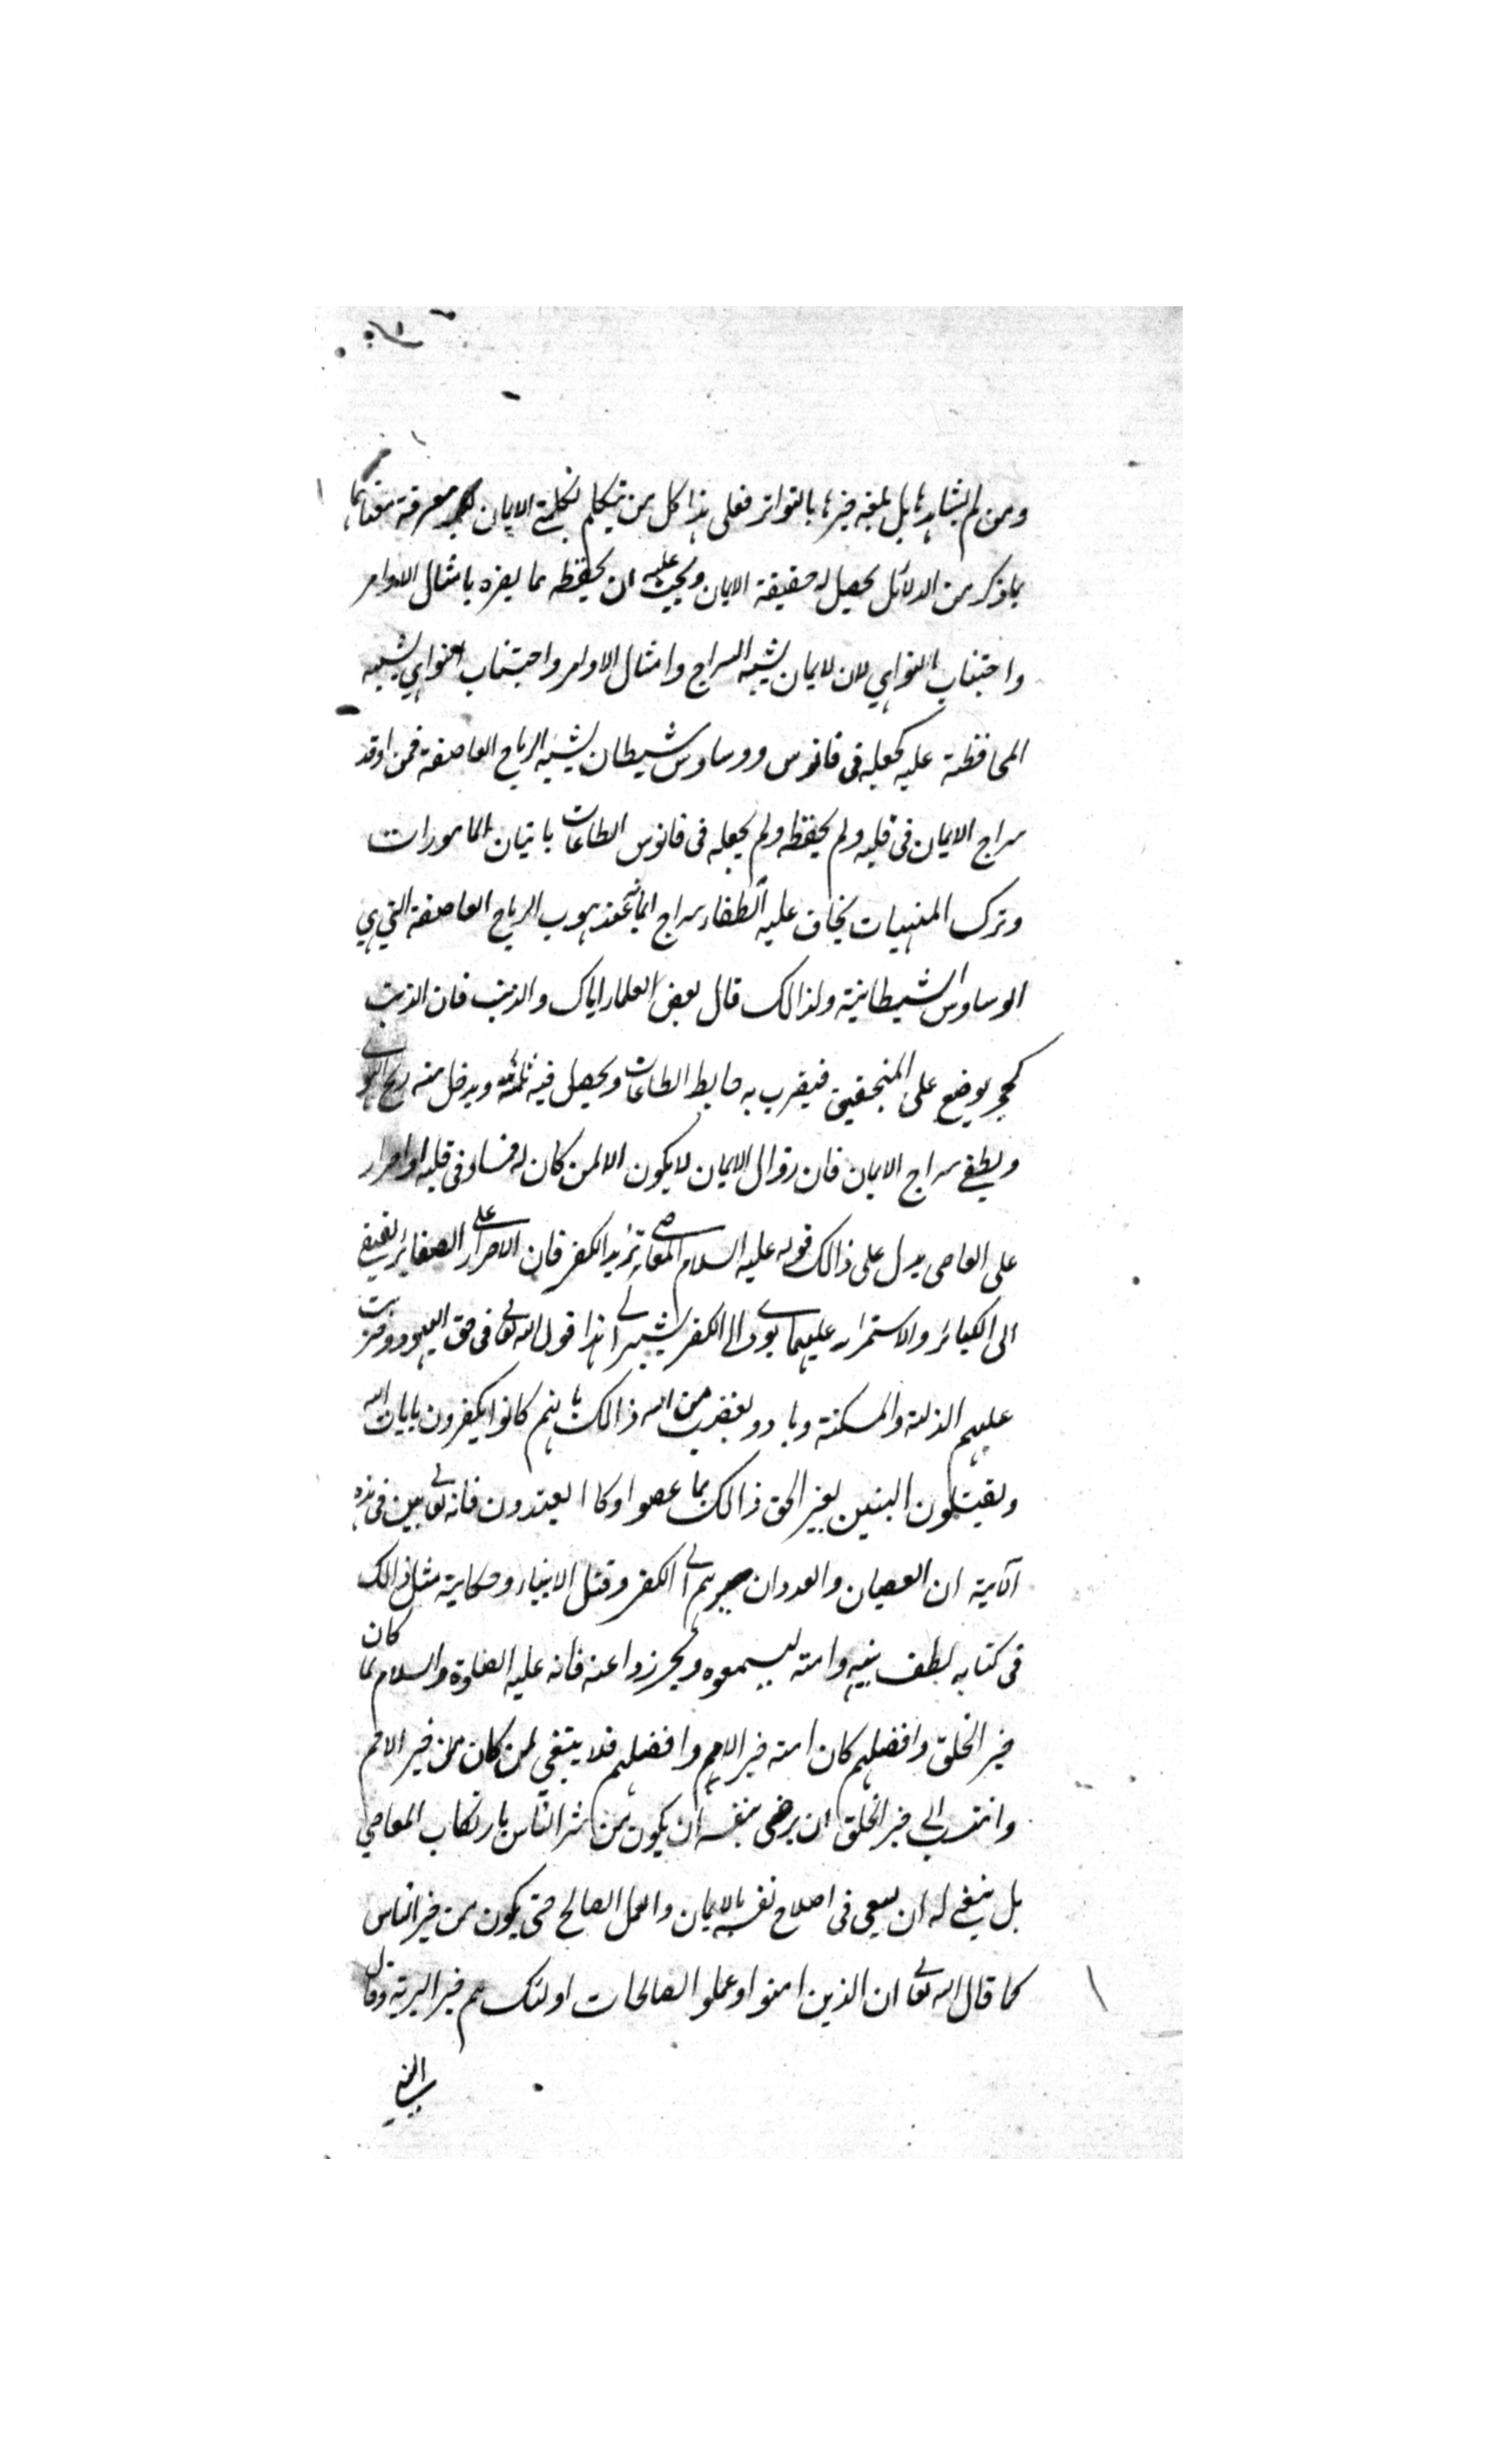 ومن لم يشاهدها بل بلغه خبرها بالتواتر فعلى هذا كل من تيكلم بكلمتي الايان بعد معرفة معناهما
بماذكر من الدلائل يحصل له حقيقة الايمان ويجب عليه ان يحفظه مما يضره بامثال الاوامر
واجتناب النواهي لان لايمان يشبه السراج وامثال الاوامر واجتناب النواهي يشبه
المحافظة عليه كجعله فى فانوس ووساوس شيطان يشبه الرياح العاصفة فمن اوقد
سراج الايمان فى قلبه ولم يحفظه ولم يجعله فى فانوس الطاعات باتيان المامورات
وترك المنهيات يخاف عليه انطفاء سراج ايمانه عند هبوب الرياح العاصفة التي هي
الوساوس الشيطانية ولذالك قال بعض العلماء اياك والذنب فان الذنب
كحجر يوضع على المنجنيق فيضرب به حايط الطاعات ويحصل فيه ثلمة ويدخل منه ريح الهوى
ويطفي سراج الايمان فان زوال الايمان لا يكون الا لمن كان له فساد فى قلبه او اصرار
على العاصى يدل على ذالك قوله عليه السلام المعاصى تزيد الكفر فان الاصرار على الصغاير يفضي
الى الكبائر والاستمرار عليها يودى الى الكفر يشير الى هذا قول الله تعالى فى حق اليهود وضربت
عليهم الذلة والمسكنة وباؤو بغضب من الله ذالك بانهم كانوا يكفرون بايات الله
ويقتلون النبيين بغير الحق ذالك بما عصوا وكانوا يعتدون فانه تعالى بين فى هذه
الآية ان العصيان والعدوان جرهم الى الكفر وقتل الانبياء وحكاية مثل ذالك
فى كتابه لطف بنبيه وامته ليسمعوه ويحرزوا عنه فانه عليه الصلوة والسلام لما كان
خير الخلق وافضلهم كان امته خير الامم وافضلهم فلا ينبغي لمن كان من خير الامم
وانتسب الى خير الخلق ان يرضى بنفسه ان يكون من شر الناس بارتكاب المعاصي
بل ينبغي له ان يسعى فى اصلاح نفسه بالايمان والعمل الصالح حتى يكون من خير الناس
كما قال الله تعالى ان الذين امنوا وعملو الصالحات اولئك هم خير البرية وقال